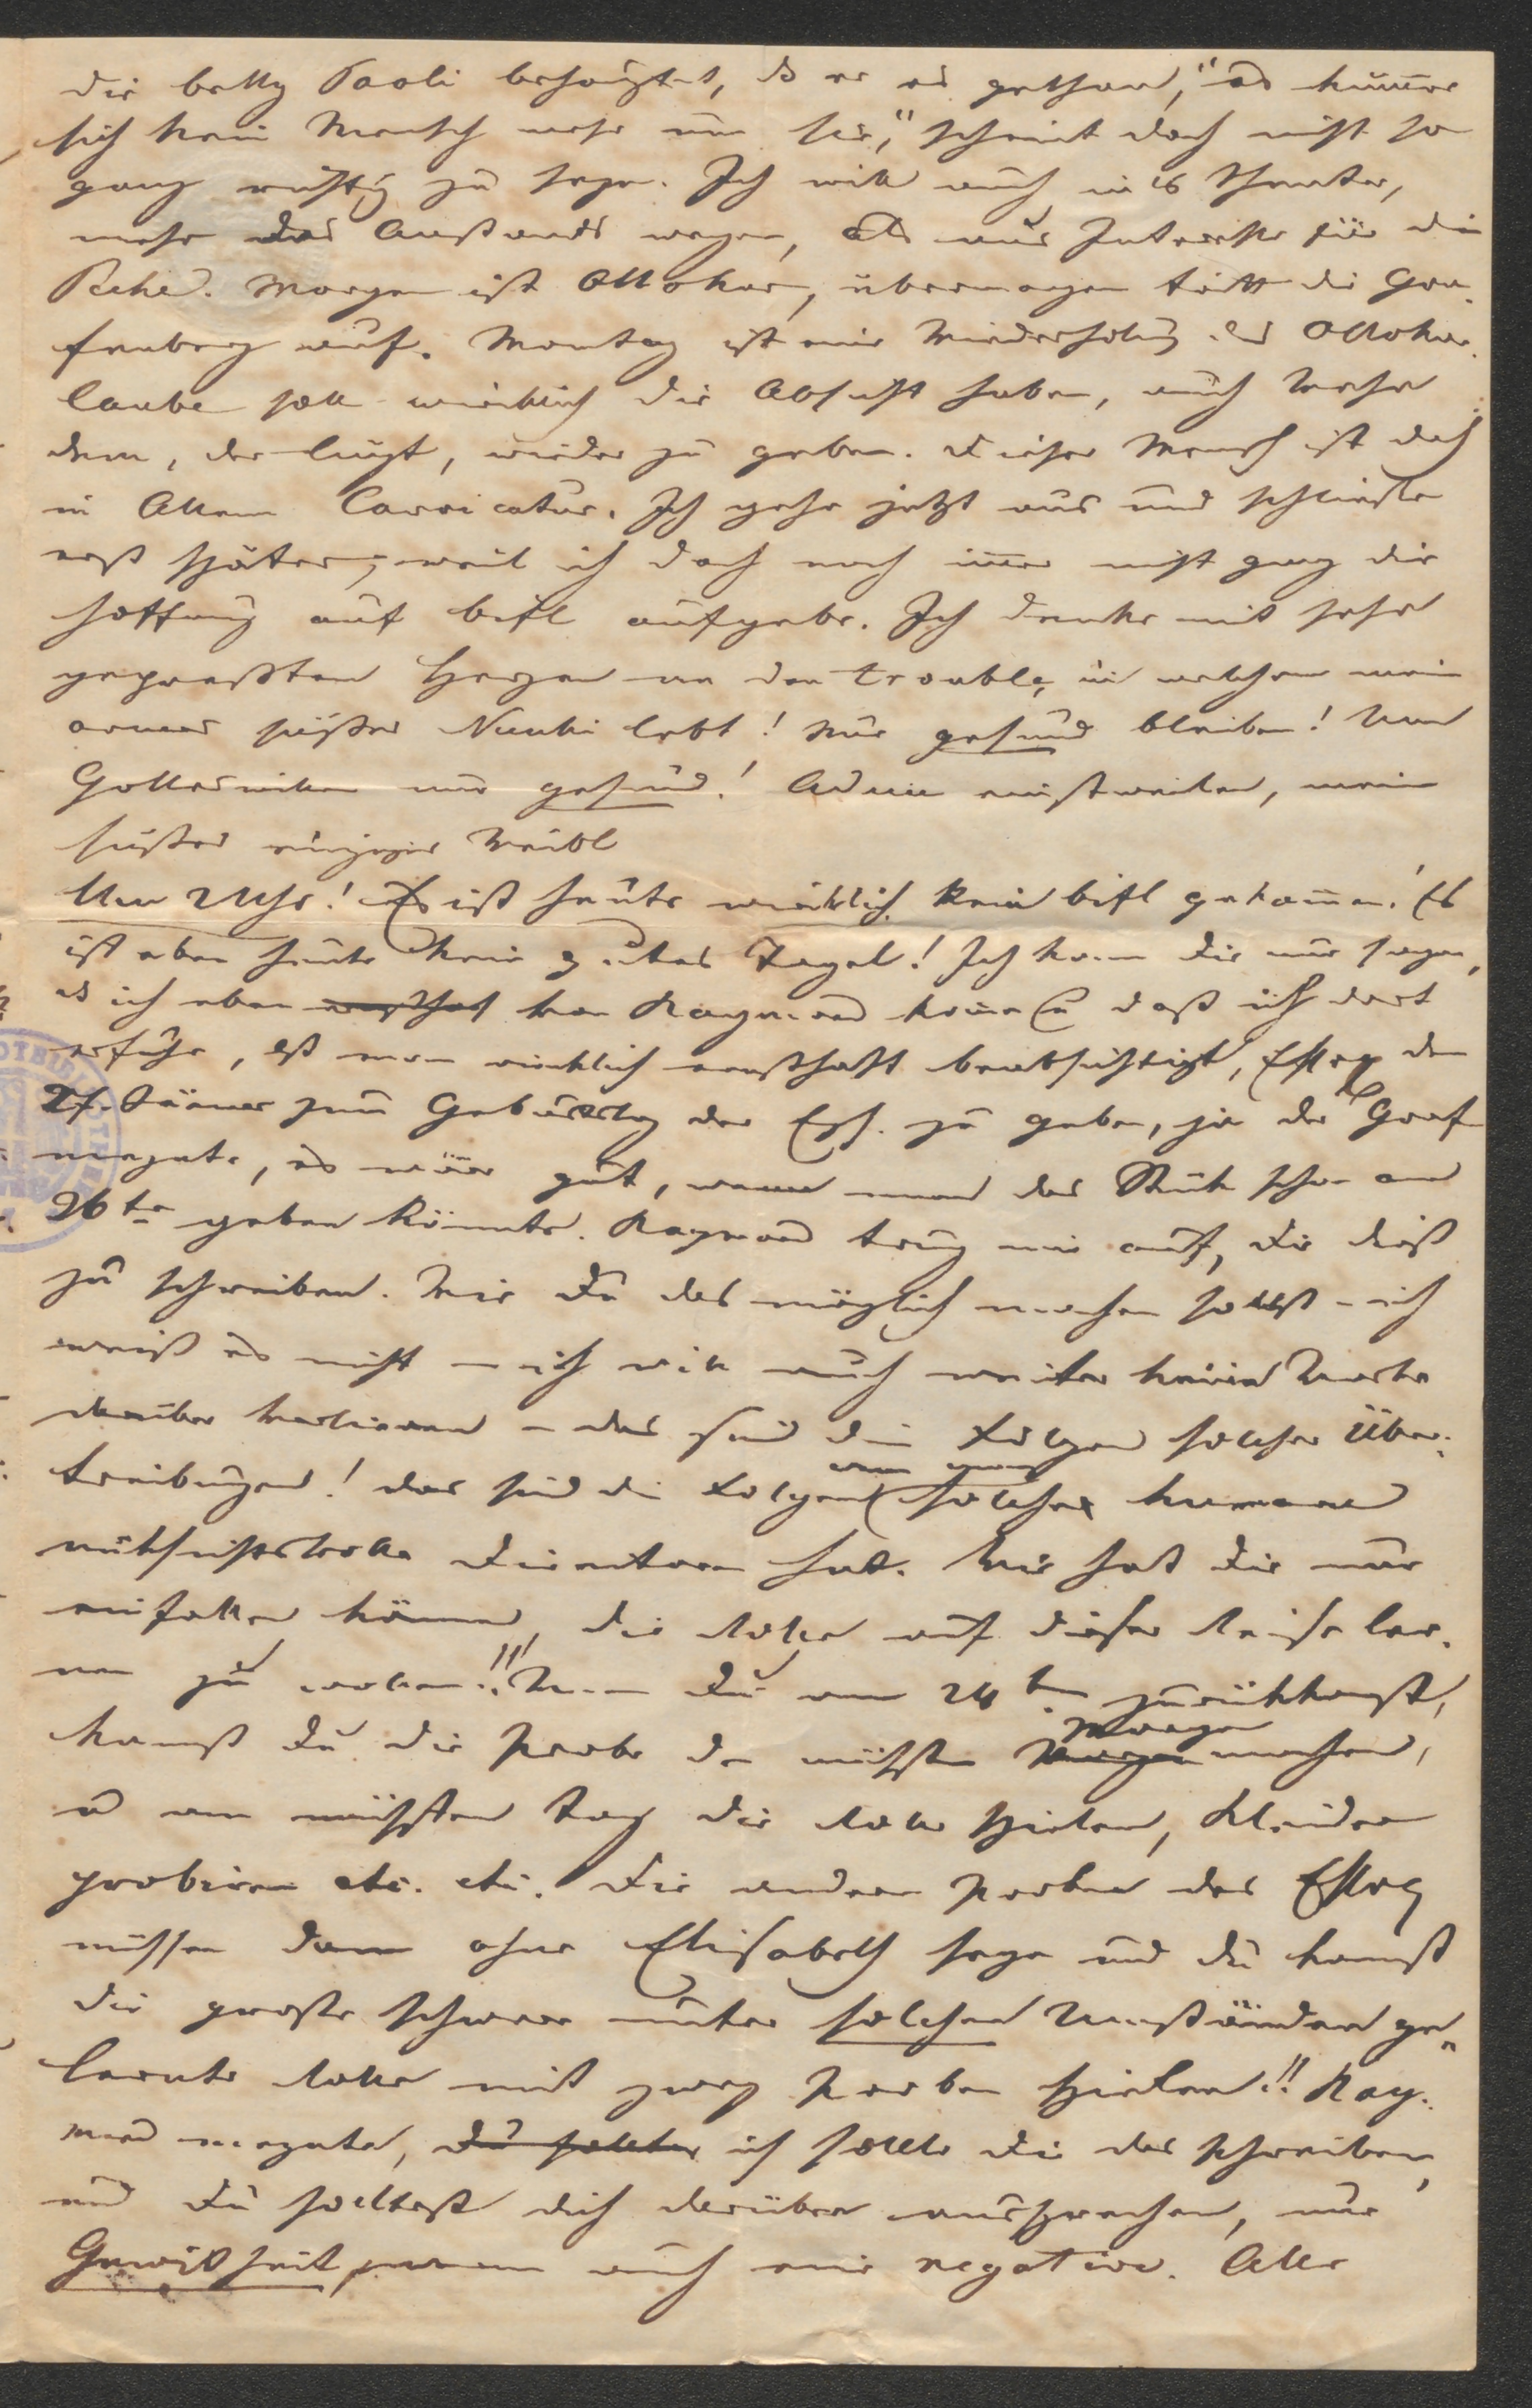 die Betty Paoli behauptet, ds er es gethan, "es kümere
sich kein Mensch mehr um sie," scheint doch nicht so
ganz richtig zu seyn. Ich will auch in's Theater,
mehr des Anstands wegen, als aus Interesse für die
Peche. Morgen ist Ottokar, übermorgen tritt die Gra-
fenberg auf. Montag ist eine Wiederholung des Ottokar.
Laube soll wirklich die Absicht haben, auch Wehe
dem, der lügt, wieder zu geben. Dieser Mensch ist doch
in Allem Carricatur. Ich gehe jetzt aus und schließe
erst später, weil ich doch noch imer nicht ganz die
Hoffnung auf Bifl aufgebe. Ich denke mit sehr
gepreßtem Herzen an den trouble, in welchem mein
armes süßes Nunki lebt! Nur gesund bleiben! Um
Gotteswillen nur gesund! Adieu einstweilen, mein
süßes einziges Weibl
Um 2 Uhr! Es ist heute wirklich kein Bifl gekomen! Es
ist eben heute kein gutes Tagel! Ich kann Dir nur sagen,
ds ich eben von Raymond kome u daß ich dort
erfuhr, daß man wirklich ernsthaft beabsichtigt, Essex den
27. Jäner zum Geburtstag der Erzh. zu geben, ja der Graf
meynte, es wäre gut, wenn man das Stück schon am
26ten geben könnte. Raymond trug mir auf, Dir dieß
zu schreiben. Wie Du das möglich machen sollst – ich
weiß es nicht – ich will auch weiter keine Worte
darüber verlieren – das sind die Folgen solcher Über-
treibungen! das sind die Folgen wenn man solche humane
rücksichtsvolle Direktoren hat. Wie hat Dir nur
einfallen können, die Rolle auf dieser Reise ler-
nen zu wollen!!! Wenn Du am 24ten zurückkomst,
kannst Du die Probe den nächsten Morgen machen,
u am nächsten Tag die Rolle spielen, Kleider
probiren etc. etc. Die andern Proben des Essex
müssen dann ohne Elisabeth seyn und Du kannst
die große schwere unter solchen Umständen ge-
lernte Rolle mit zwey Proben spielen!! Ray-
mond meynte, Du solltes ich sollte Dir das schreiben,
und Du solltest dich darüber aussprechen, nur
Gewißheit, wenn auch eine negative. Alle